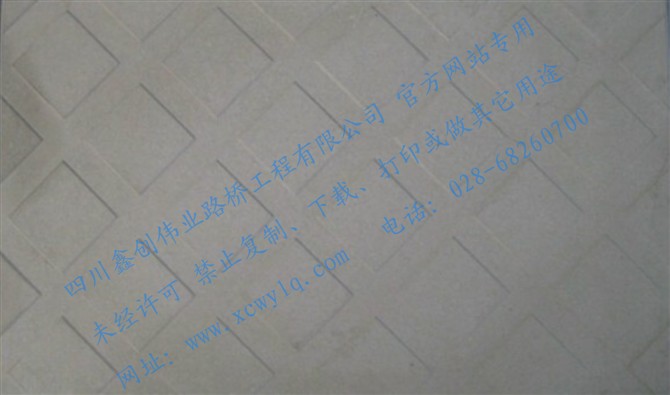 四川鑫创伟业路桥工程有限公司 官方网站专用
未经许可 禁止复制、下载、打印或做其它用途
网址：www.xcwylq.com 电话：028-68260700